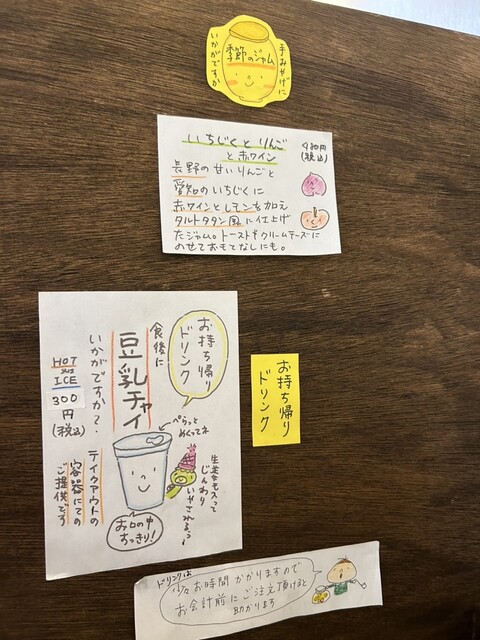 手みやげに
いかがですか
季節のジャム
いちじくとりんご
と赤ワイン
980円
(税込)
長野の甘いりんごと
愛知のいちじくに
赤ワインとレモンを加え
タルトタタン風に仕上げ
たジャム。トーストやクリームチーズに
のせておもてなしにも。
お持ち帰り
ドリンク
食後に
豆乳チャイ
いかがですか?
HOT
ICE
300
円
(税込)
ぺらっと
めくってネ
生姜も入って
じんわり
いやされるぅ〜
お口の中
すっきり!
テイクアウトの
容器にての
ご提供です
お持ち帰り
ドリンク
ドリンクは
少々お時間かかりますので
お会計前にご注文頂けると
助かります